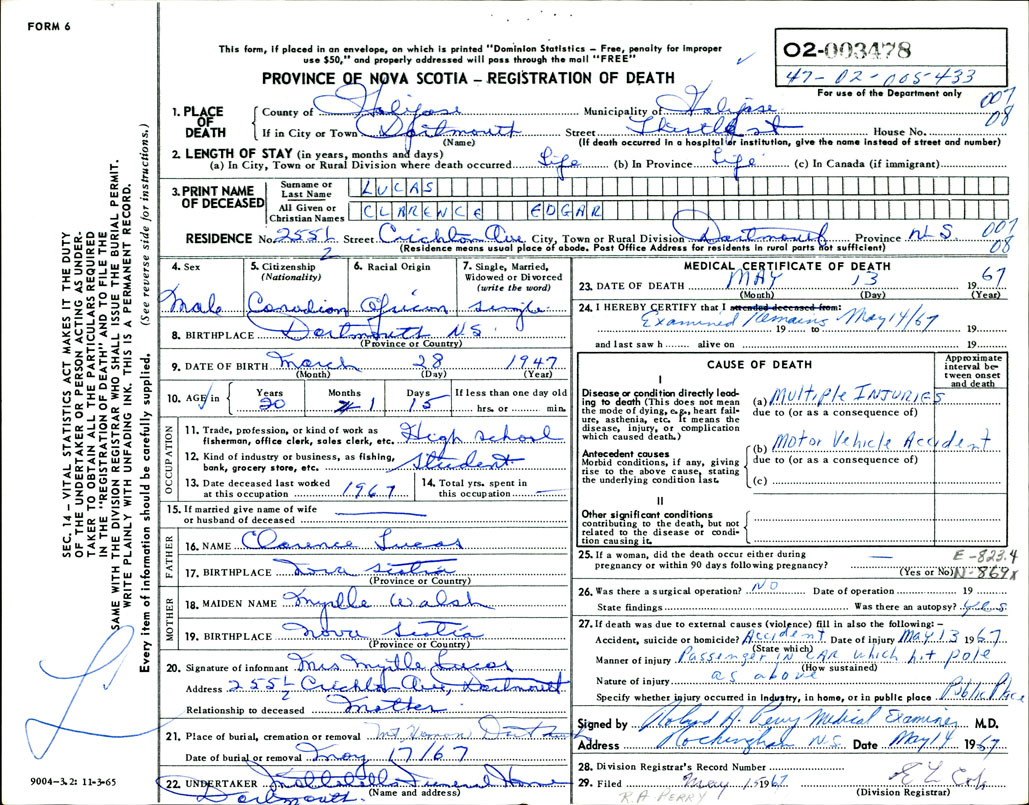 FORM 6
This form, if placed in an envelope, on which is printed "Dominion Statistics – Free, penalty for improper
use $50," and properly addressed will pass through the mail "FREE"
PROVINCE OF NOVA SCOTIA – REGISTRATION OF DEATH
O2-003478
47-02-005433
For use of the Department only
007
08
1. PLACE OF DEATH
County of Halifax Municipality of Halifax
If in City or Town Dartmouth Street Thistle st House No.
(Name) (If death occurred in a hospital or institution, give the name instead of street and number)
2. LENGTH OF STAY (in years, months and days)
(a) In City, Town or Rural Division where death occurred Life (b) In Province Life (c) In Canada (if immigrant)
3. PRINT NAME OF DECEASED
Surname or Last Name LUCAS
All Given or Christian Names CLARENCE EDGAR
RESIDENCE No. 255 1/2 Street Crichton Ave City, Town or Rural Division Dartmouth Province N S
007
08
(Residence means usual place of abode. Post Office Address for residents in rural parts not sufficient)
4. Sex
Male
5. Citizenship
(Nationality)
Canadian
6. Racial Origin
African
7. Single, Married,
Widowed or Divorced
(write the word)
single
8. BIRTHPLACE Dartmouth N.S.
(Province or Country)
9. DATE OF BIRTH March 28 1947
(Month) (Day) (Year)
10. AGE in Years 20 Months 1 Days 15 If less than one day old
hrs. or min.
OCCUPATION
11. Trade, profession, or kind of work as
fisherman, office clerk, sales clerk, etc. High school
12. Kind of industry or business, as fishing,
bank, grocery store, etc. Student
13. Date deceased last worked
at this occupation 1967
14. Total yrs. spent in
this occupation —
15. If married give name of wife
or husband of deceased —
FATHER
16. NAME Clarence Lucas
17. BIRTHPLACE Nova Scotia
(Province or Country)
MOTHER
18. MAIDEN NAME Myrtle Walsh
19. BIRTHPLACE Nova Scotia
(Province or Country)
20. Signature of informant Mrs Myrtle Lucas
Address 255 1/2 Crichton Ave, Dartmouth
Relationship to deceased Mother
21. Place of burial, cremation or removal
Date of burial or removal May 17/67
22. UNDERTAKER Funeral Home
(Name and address)
Dartmouth.
MEDICAL CERTIFICATE OF DEATH
23. DATE OF DEATH MAY 13 1967
(Month) (Day) (Year)
24. I HEREBY CERTIFY that I attended deceased from:
Examined Remains May 14/67
19 to 19
and last saw h alive on 19
CAUSE OF DEATH
Approximate
interval be-
tween onset
and death
I
Disease or condition directly lead-
ing to death (This does not mean
the mode of dying, e.g., heart fail-
ure, asthenia, etc. It means the
disease, injury, or complication
which caused death.)
(a) Multiple INJURIES
due to (or as a consequence of)
Antecedent causes
Morbid conditions, if any, giving
rise to the above cause, stating
the underlying condition last.
(b) Motor Vehicle Accident
due to (or as a consequence of)
(c)
II
Other significant conditions
contributing to the death, but not
related to the disease or condi-
tion causing it.
25. If a woman, did the death occur either during
pregnancy or within 90 days following pregnancy? —
(Yes or No)
E-823.4
N-869x
26. Was there a surgical operation? NO Date of operation 19
State findings Was there an autopsy? Yes
27. If death was due to external causes (violence) fill in also the following: –
Accident, suicide or homicide? Accident Date of injury MAY 13 1967
(State which)
Manner of injury Passenger IN CAR which hit pole
(How sustained)
Nature of injury as above
Specify whether injury occurred in industry, in home, or in public place Public Place
Signed by Roland A. Perry Medical Examiner M.D.
Address Rockingham N.S. Date May 14 1967
28. Division Registrar's Record Number
29. Filed May 15 1967
R.A PERRY
(Division Registrar)
SEC. 14 – VITAL STATISTICS ACT MAKES IT THE DUTY
OF THE UNDERTAKER OR PERSON ACTING AS UNDER-
TAKER TO OBTAIN ALL THE PARTICULARS REQUIRED
IN THE "REGISTRATION OF DEATH" AND TO FILE THE
SAME WITH THE DIVISION REGISTRAR WHO SHALL ISSUE THE BURIAL PERMIT.
WRITE PLAINLY WITH UNFADING INK. THIS IS A PERMANENT RECORD.
Every item of information should be carefully supplied. (See reverse side for instructions.)
9004–3.2: 11-3-65